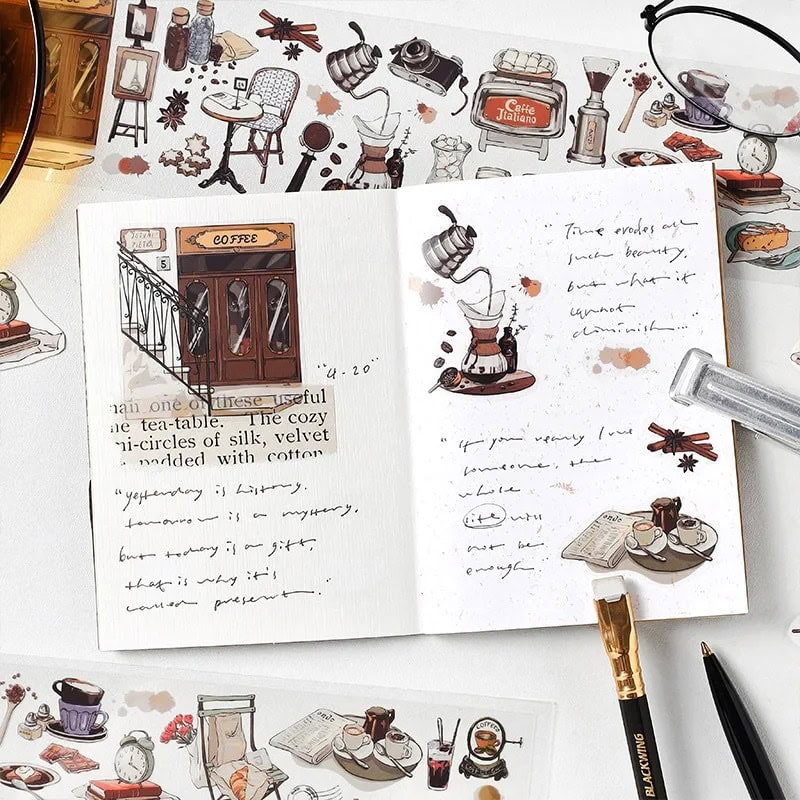 Caffè
Italiano
COFFEE
5
"4-20"
han one of these useful
he tea-table. The cozy
mi-circles of silk, velvet
padded with cotton
"yesterday is history.
tomorrow is a mystery.
but today is a gift,
that is why it's
called present."
"Time erodes all
such beauty.
but what it
cannot
diminish..."
"if you really love
someone, the
whole
life will
not be
enough
COFFEE
BLACKWING